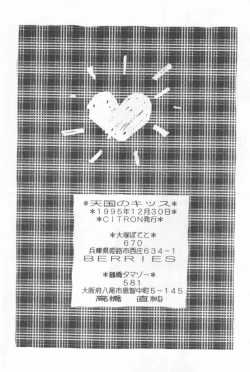 *天国のキッス*
*1995年12月30日*
*CITRON発行*
*大塚ぽてと*
670
兵庫県姫路市西庄634-1
BERRIES
*鶴橋タマゾー*
581
大阪府八尾市恩智中町5-145
高橋 直純